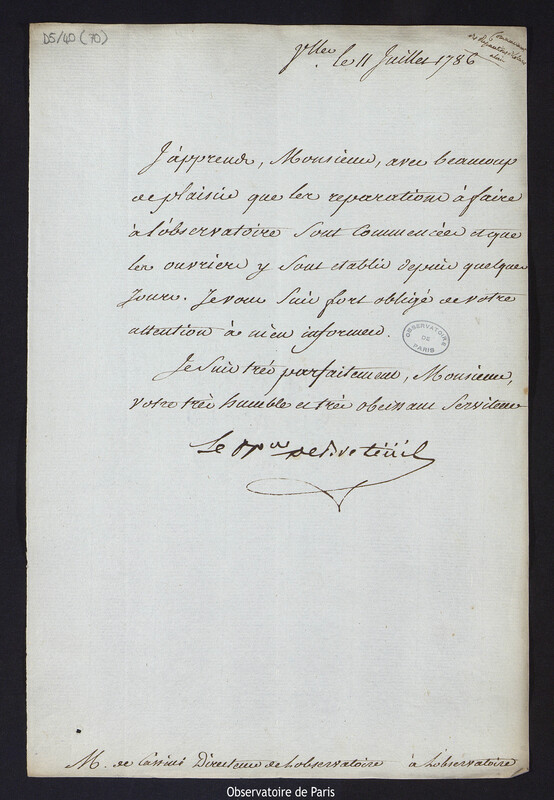 D5/40 (70)
Vlles le 11 Juillet 1786
J'apprends, Monsieur, avec beaucoup
de plaisir que les reparations à faire
à l'observatoire sont commencées et que
les ouvriers y sont etablis depuis quelques
jours. Je vous suis fort obligé de votre
attention à m'en informer.
OBSERVATOIRE
DE
PARIS
Je suis très parfaitement, Monsieur,
votre très humble et très obeissant Serviteur
Le Bon de Breteüil
M. de Cassini Directeur de l'observatoire à l'observatoire
Observatoire de Paris